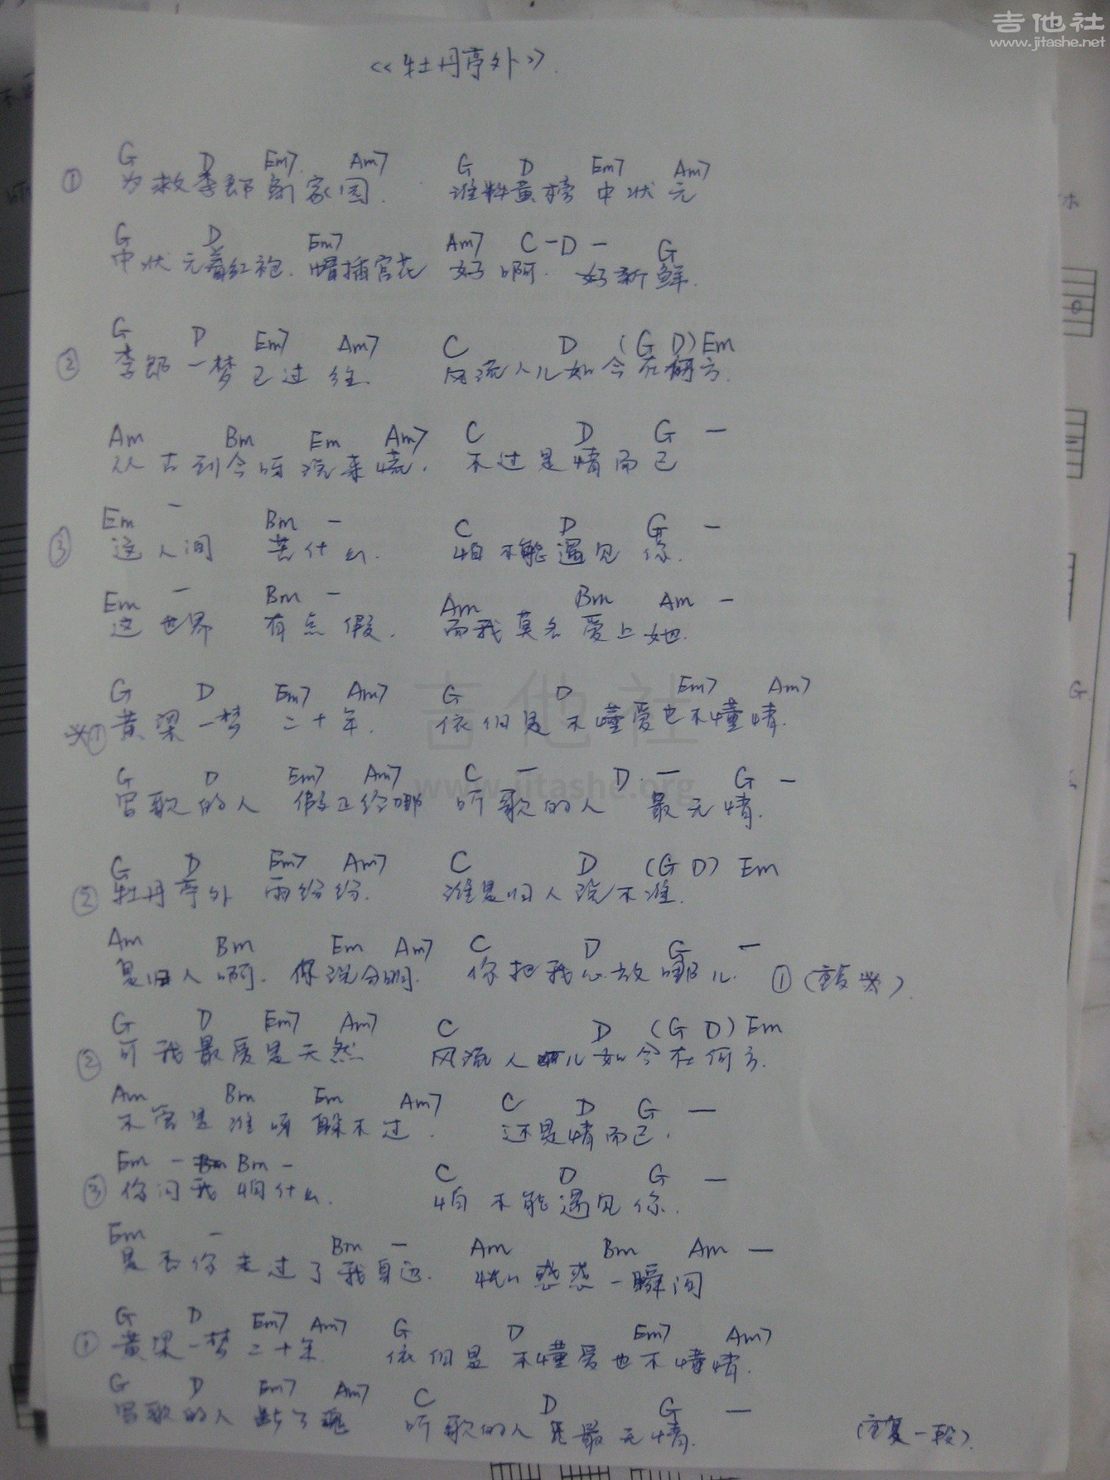 吉他社
www.jitashe.net
<<牡丹亭外>>
G D Em7 Am7 G D Em7 Am7
① 为救李郎离家园. 谁料黄榜 中状元
G D Em7 Am7 C - D - G
中状元着红袍. 帽插宫花 好啊. 好新鲜.
G D Em7 Am7 C D (G D) Em
② 李郎一梦已过往. 风流人儿如今在何方.
Am Bm Em Am7 C D G —
从古到今呀说来慌. 不过是情而已
Em - Bm - C D G -
③ 这人间 苦什么. 怕不能遇见你.
Em - Bm - Am Bm Am -
这世界 有点假. 而我莫名爱上她.
G D Em7 Am7 G D Em7 Am7
※① 黄粱一梦 二十年. 依旧是不懂爱也不懂情.
G D Em7 Am7 C — D — G —
写歌的人 假正经哪 听歌的人 最无情.
G D Em7 Am7 C D (G D) Em
② 牡丹亭外 雨纷纷. 谁是归人说不准.
Am Bm Em Am7 C D G —
是归人啊. 你说分明. 你把我心放哪儿. ① (重复※)
G D Em7 Am7 C D (G D) Em
② 可我最爱是天然 风流人儿如今在何方.
Am Bm Em Am7 C D G —
不管是谁呀躲不过. 还是情而已.
Em - Bm - C D G —
③ 你问我 怕什么. 怕不能遇见你.
Em - Bm - Am Bm Am —
是否你走过了我身边. 恍恍惑惑一瞬间
G D Em7 Am7 G D Em7 Am7
① 黄粱一梦二十年 依旧是 不懂爱也不懂情.
G D Em7 Am7 C D G —
写歌的人 断了魂 听歌的人 是最无情.
(重复一段)
吉他社
www.jitashe.org